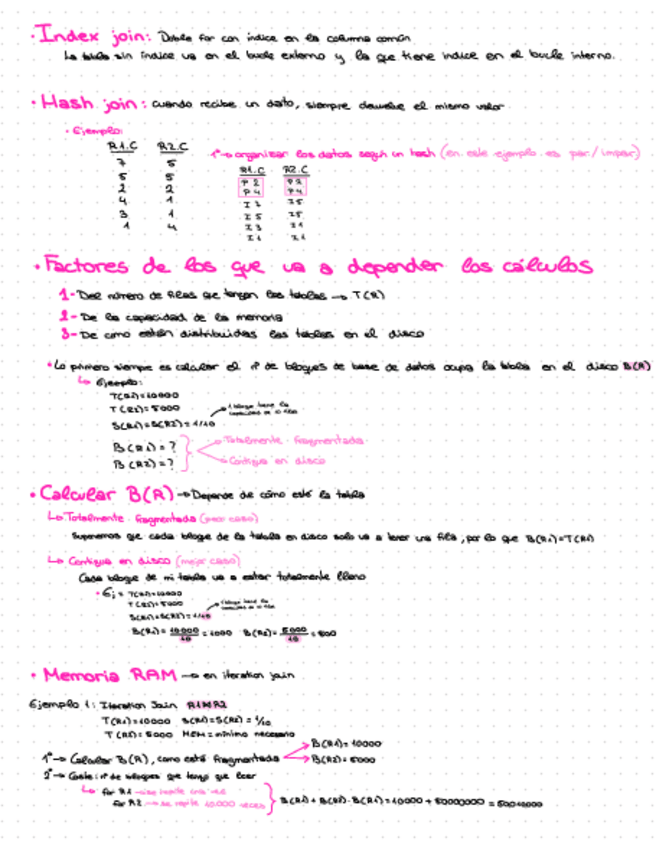 · Index join: Doble for con indice en la columna común
La tabla sin índice va en el bucle externo y la que tiene indice en el bucle interno.
· Hash join: cuando recibe un dato, siempre devuelve el mismo valor
· Ejemplo:
R1.C R2.C
7 5
5 5
2 2
4 1
3 1
1 4
1º→ organizar los datos según un hash (en este ejemplo es par/impar)
R1.C R2.C
P 2 P 2
P 4 P 4
I 7 I 5
I 5 I 5
I 3 I 1
I 1 I 1
· Factores de los que va a depender los cálculos
1- Del número de filas que tengan las tablas → T(R)
2- De la capacidad de la memoria
3- De cómo están distribuidas las tablas en el disco
* Lo primero siempre es calcular el nº de bloques de base de datos ocupa la tabla en el disco B(R)
↳ Ejemplo:
T(R1)=10000
T(R2)=5000
S(R1)=S(R2)=1/10
1 bloque tiene la capacidad de
B(R1)=?
B(R2)=?
Totalmente fragmentada
Contigua en disco
· Calcular B(R) → Depende de cómo esté la tabla
↳ Totalmente fragmentada (peor caso)
Suponemos que cada bloque de la tabla en disco solo va a tener una fila, por lo que B(R1)=T(R1)
↳ Contigua en disco (mejor caso)
Cada bloque de mi tabla va a estar totalmente lleno
· Ej: T(R1)=10000
T(R2)=5000
S(R1)=S(R2)=1/10
B(R1)=10000/10=1000 B(R2)=5000/10=500
· Memoria RAM → en iteration join
Ejemplo 1: Iteration Join R1⋈R2
T(R1)=10000 S(R1)=S(R2)=1/10
T(R2)=5000 MEM=mínimo necesario
1º→ Calcular B(R), como está fragmentada
B(R1)=10000
B(R2)=5000
2º→ Coste: nº de bloques que tengo que leer
↳ for R1 → se repite una vez
for R2 → se repite 10.000 veces
B(R1)+B(R2)·B(R1)=10000+50000000=50010000